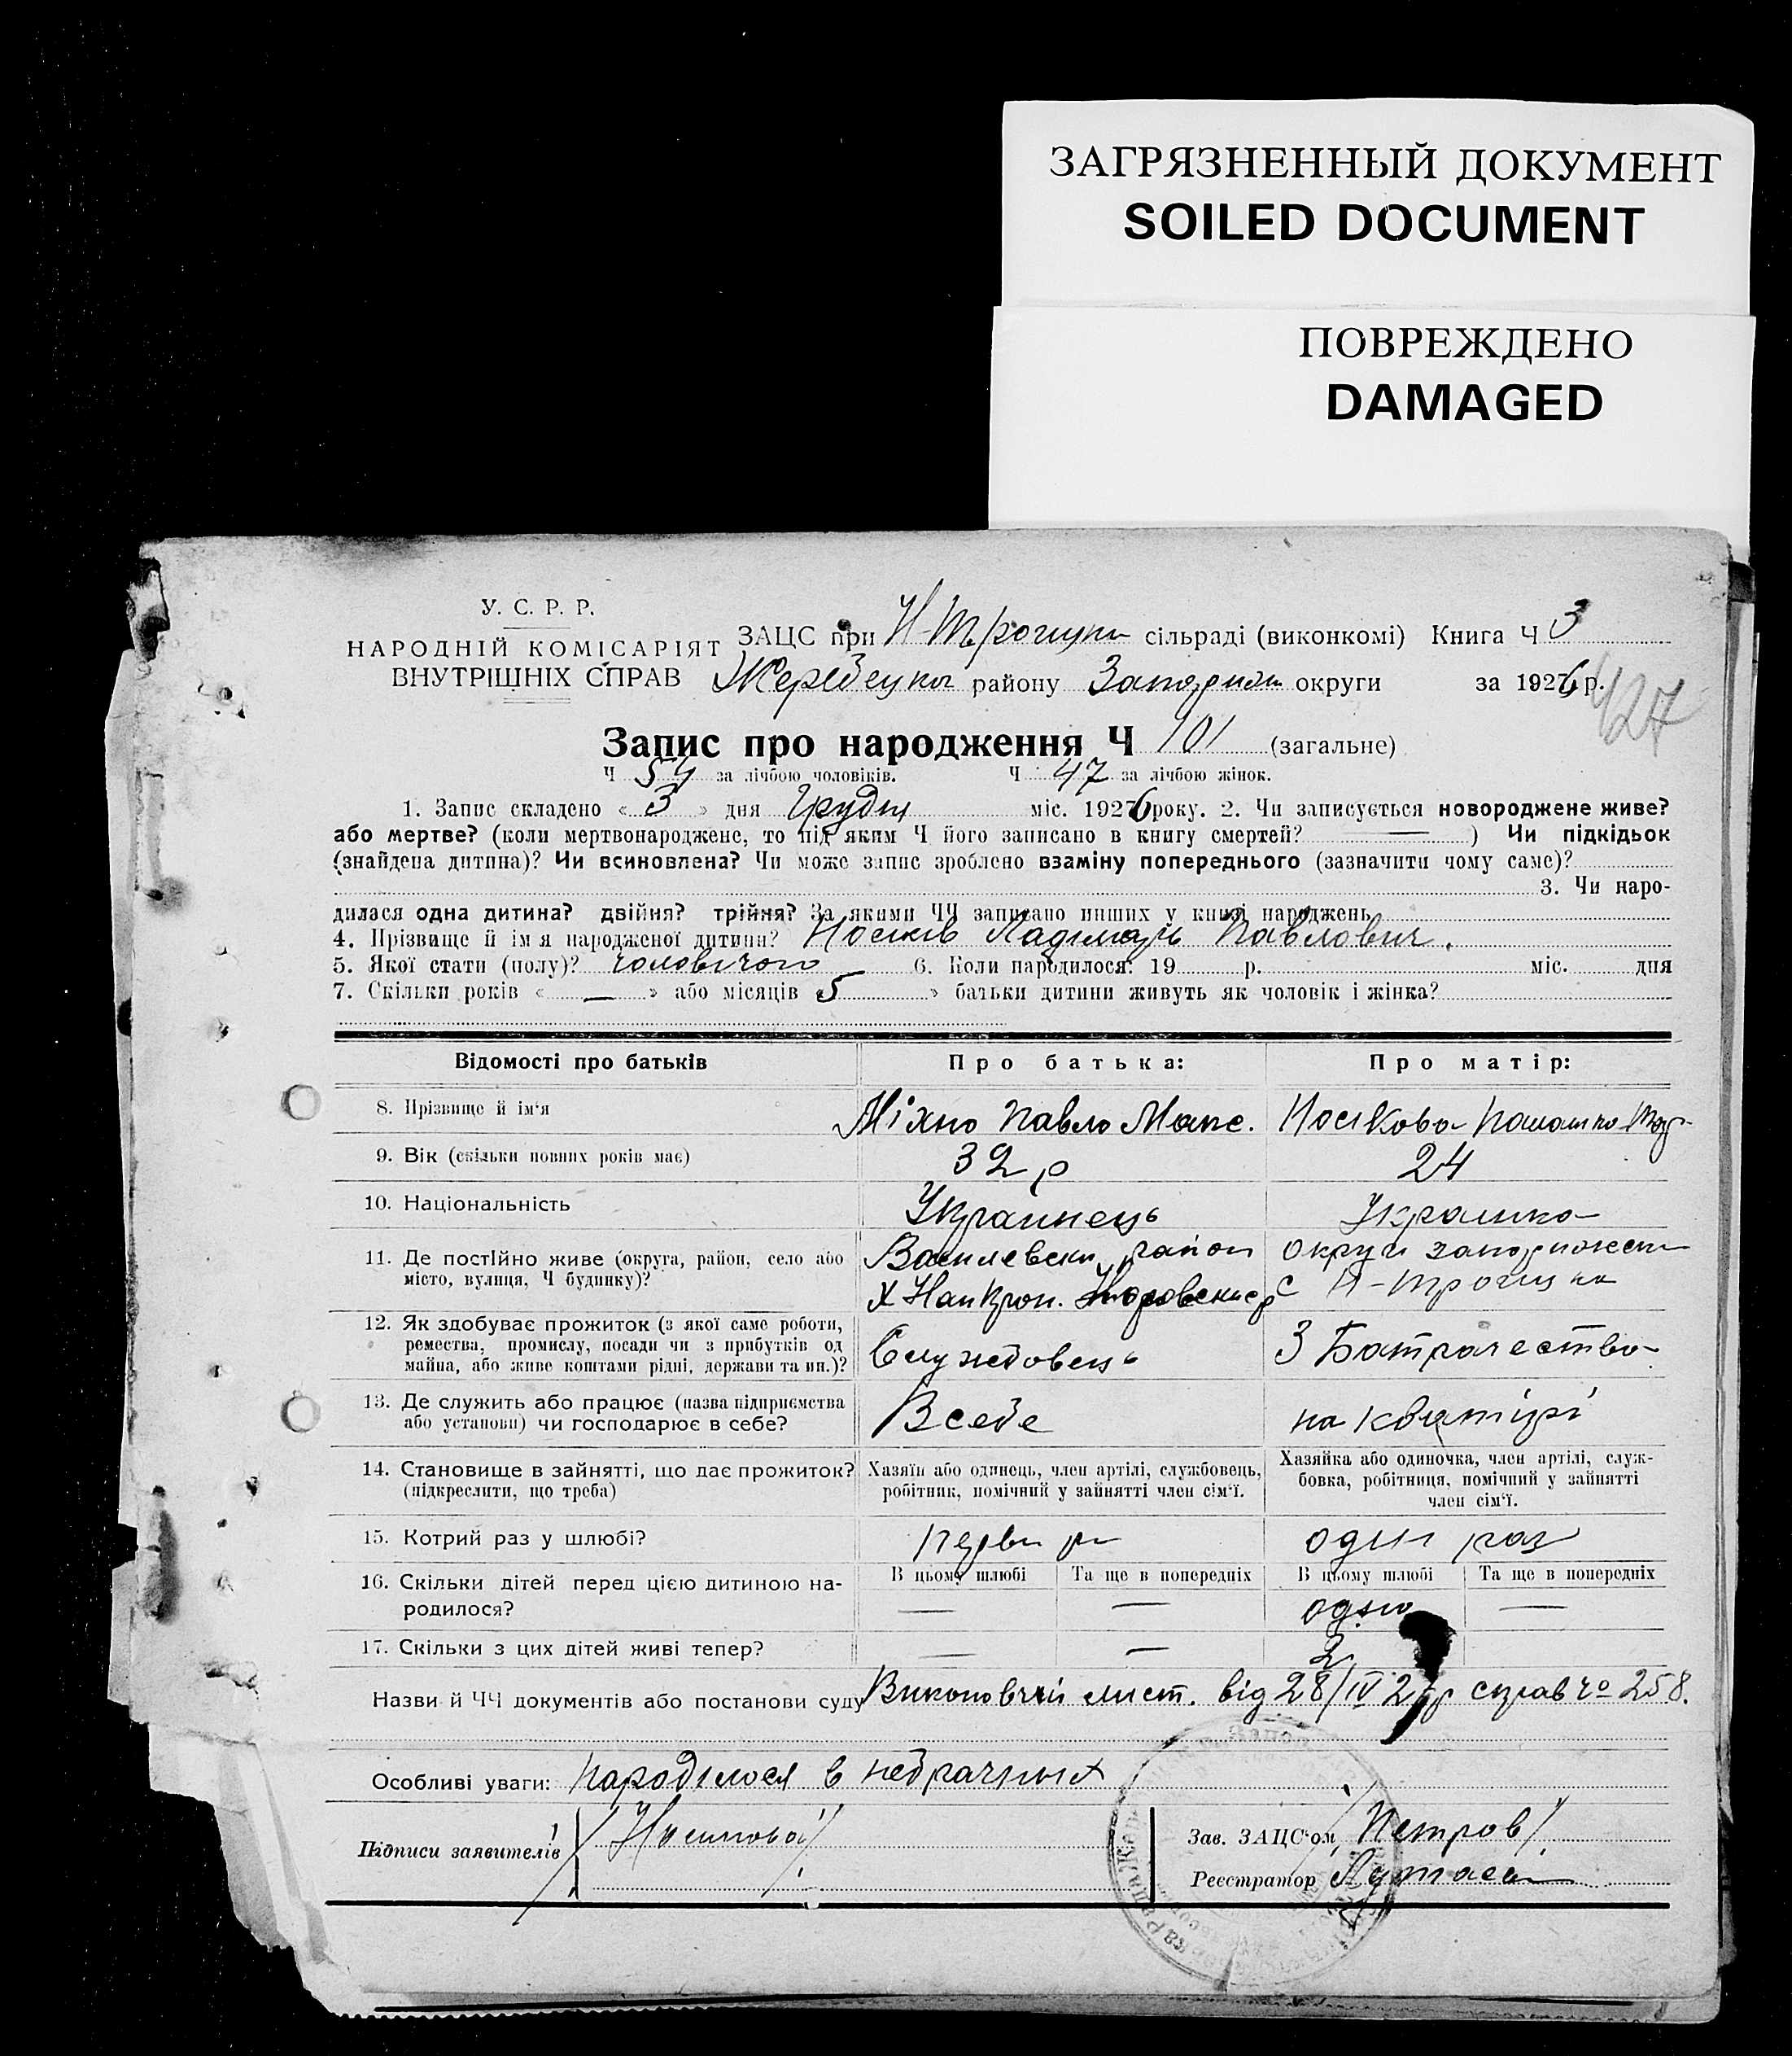 ЗАГРЯЗНЕННЫЙ ДОКУМЕНТ
SOILED DOCUMENT
ПОВРЕЖДЕНО
DAMAGED
У. С. Р. Р.
НАРОДНІЙ КОМІСАРІЯТ
ВНУТРІШНІХ СПРАВ
ЗАЦС при сільраді (виконкомі) Книга Ч 3
району округи за 1926 р.
127
Запис про народження Ч 101 (загальне)
Ч 54 за лічбою чоловіків. Ч 47 за лічбою жінок.
1. Запис складено « 3 » дня Грудня міс. 1926 року. 2. Чи записується новороджене живе?
або мертве? (коли мертвонароджене, то під яким Ч його записано в книгу смертей? — ) Чи підкідьок
(знайдена дитина)? Чи всиновлена? Чи може запис зроблено взаміну попереднього (зазначити чому саме)?
3. Чи наро-
дилася одна дитина? двійня? трійня? За якими ЧЧ записано инших у книзі народжень
4. Прізвище й імя народженої дитини? Носиків Павлович.
5. Якої стати (полу)? чоловічого 6. Коли народилося: 19 р. міс. дня
7. Скільки років « — » або місяців « 5 » батьки дитини живуть як чоловік і жінка?
Відомості про батьків Про батька: Про матір:
8. Прізвище й ім'я Міхно Павло Макс. Носікова
9. Вік (скільки повних років має) 32 р 24
10. Національність Українець Українка
11. Де постійно живе (округа, район, село або
місто, вулиця, Ч будинку)?
район округи
12. Як здобуває прожиток (з якої саме роботи,
ремества, промислу, посади чи з прибутків од
майна, або живе коштами рідні, держави та ин.)?
Службовець З Батрачества
13. Де служить або працює (назва підприємства
або установи) чи господарює в себе?
В себе на квартирі
14. Становище в зайнятті, що дає прожиток?
(підкреслити, що треба)
Хазяїн або одинець, член артілі, службовець,
робітник, помічний у зайнятті член сім'ї.
Хазяйка або одиночка, член артілі, служ-
бовка, робітниця, помічний у зайнятті
член сім'ї.
15. Котрий раз у шлюбі? один раз
16. Скільки дітей перед цією дитиною на-
родилося?
В цьому шлюбі Та ще в попередніх В цьому шлюбі Та ще в попередніх
— — одно —
17. Скільки з цих дітей живі тепер? — — 2
Назви й ЧЧ документів або постанови суду Виконовчий лист. від 28/IV 27 р справ чо 258.
Особливі уваги: народилося в небрачных
Підписи заявителів Носикова
Зав. ЗАЦС'ом Петров
Реєстратор